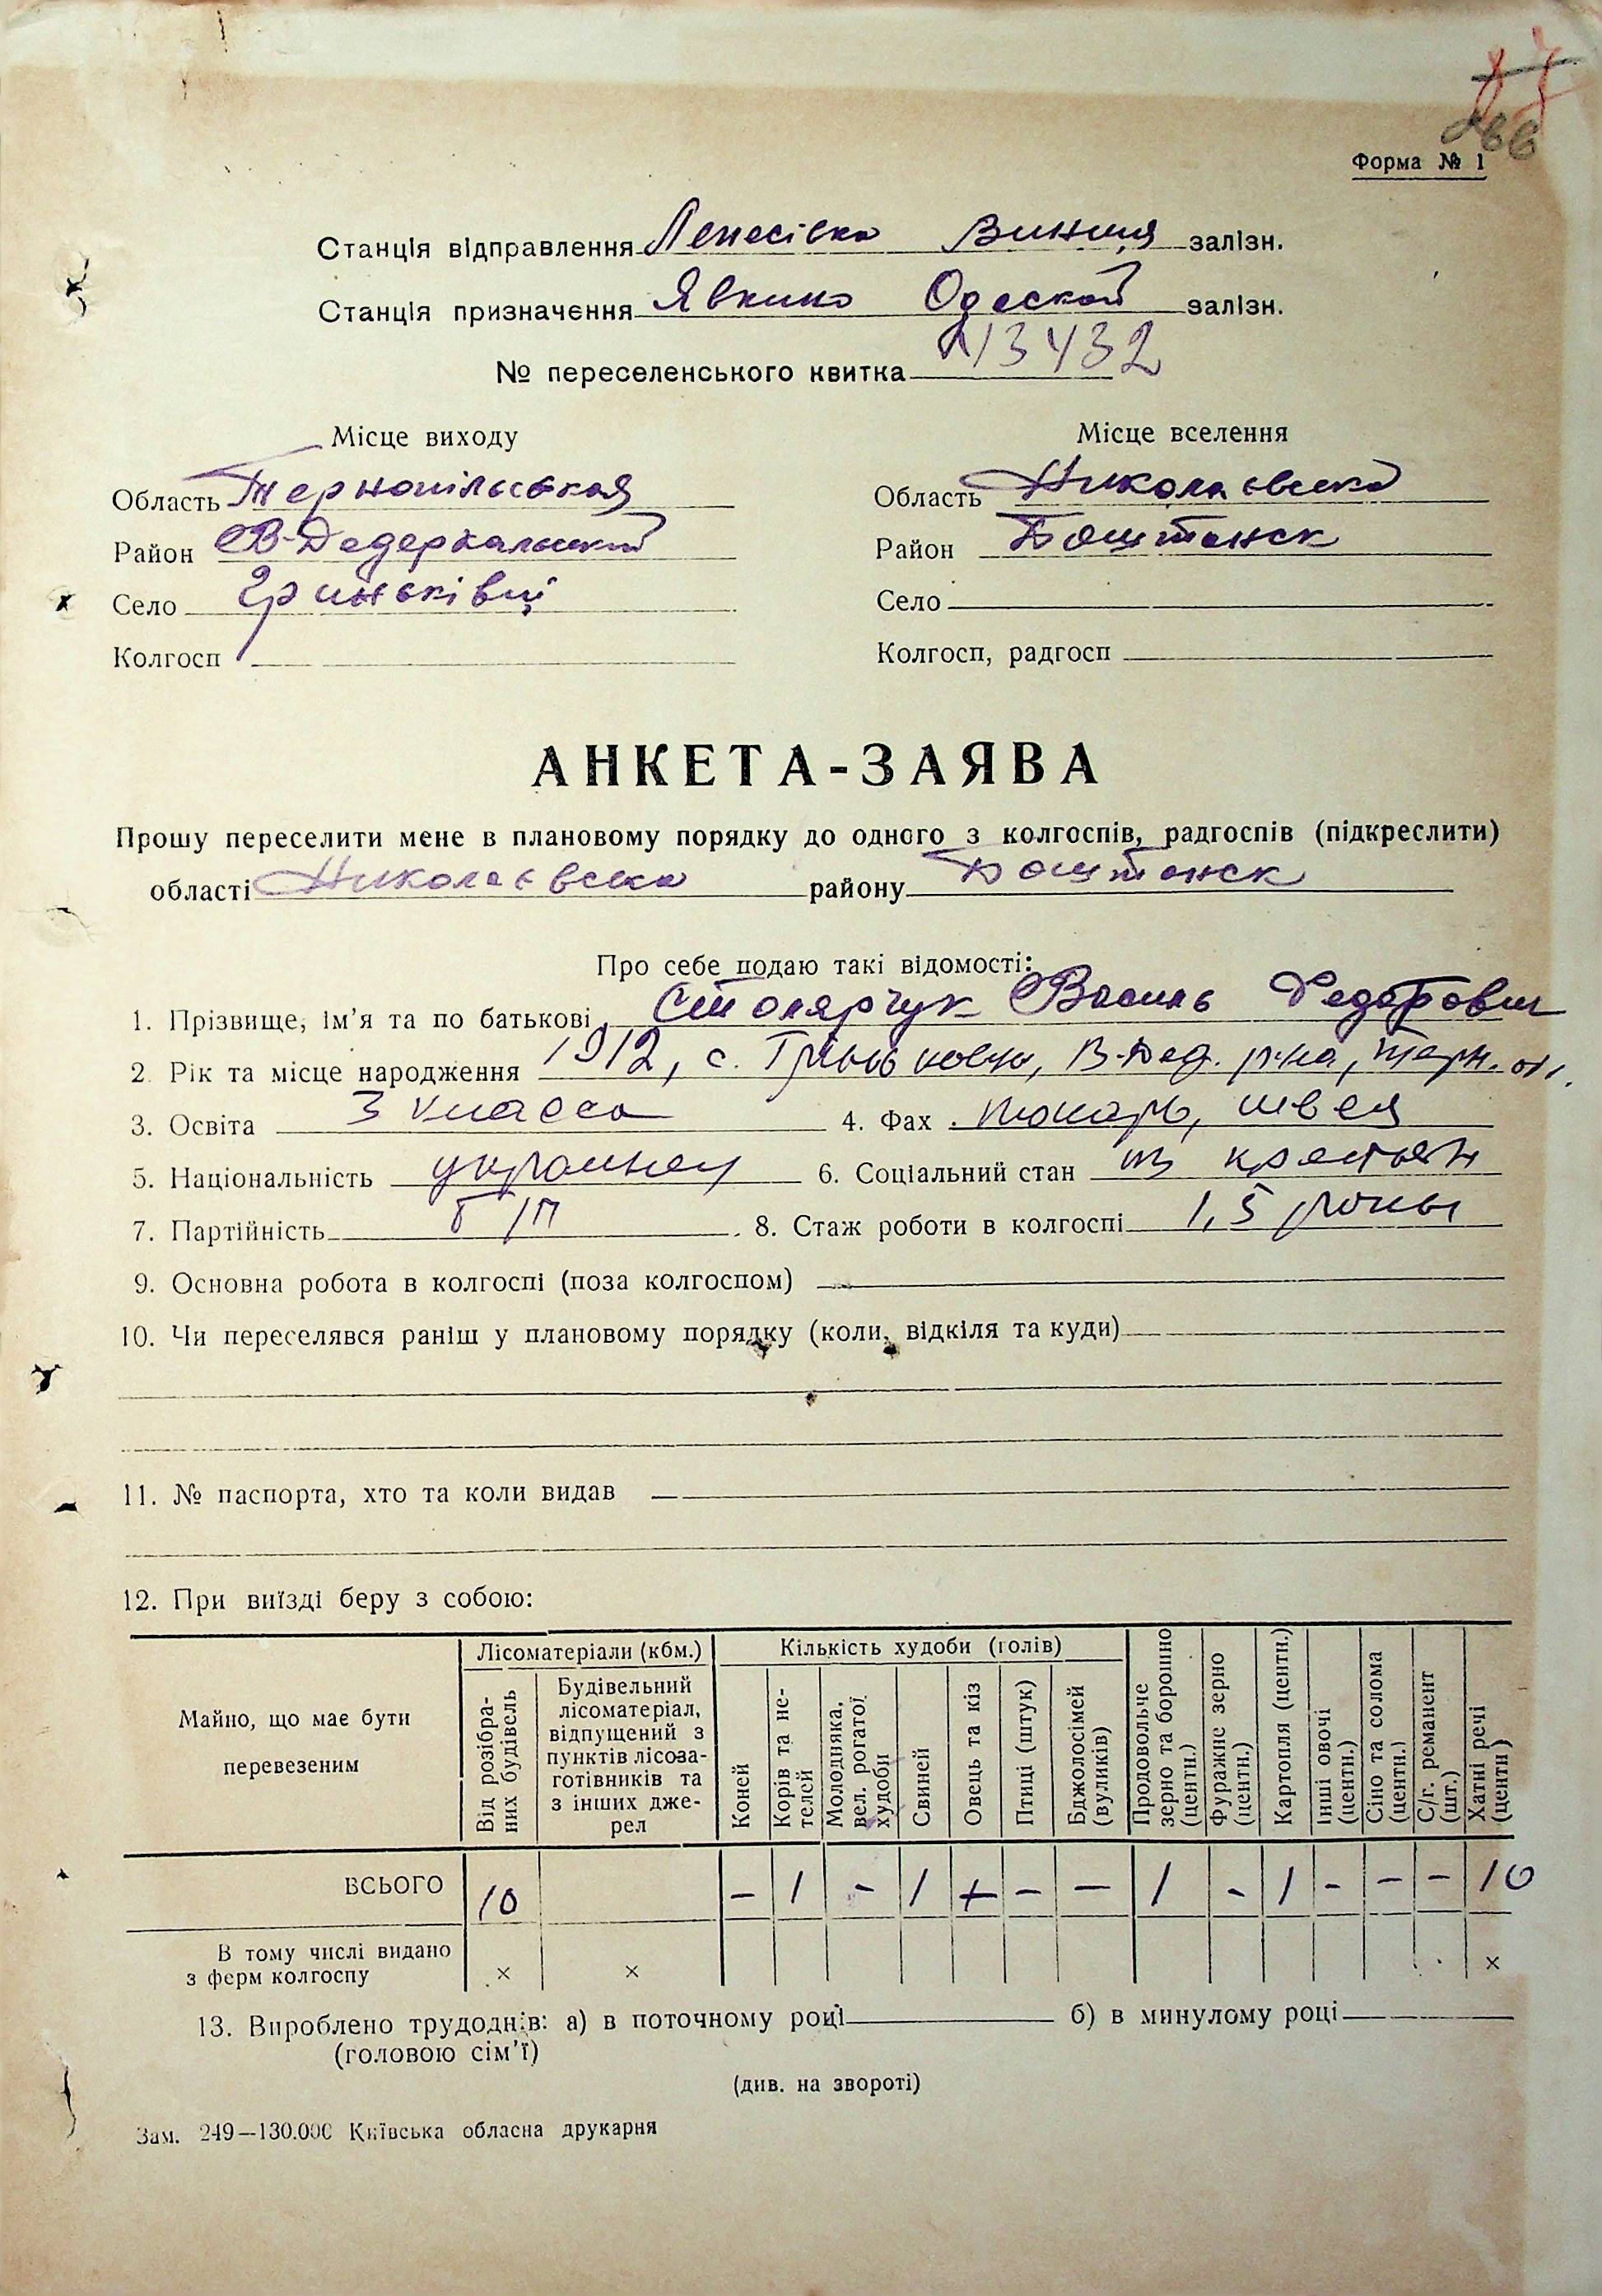 87
Форма № 1
Станція відправлення Ленесівка Винниця залізн.
Станція призначення Явкино Одеской залізн.
№ переселенського квитка 413432
Місце виходу
Місце вселення
Область Тернопільськая
Область Николаєвска
Район В-Дедеркальский
Район Баштанск
Село Гриньківці
Село
Колгосп
Колгосп, радгосп
АНКЕТА-ЗАЯВА
Прошу переселити мене в плановому порядку до одного з колгоспів, радгоспів (підкреслити)
області Николаєвска району Баштанск
Про себе подаю такі відомості:
1. Прізвище, ім'я та по батькові Столярчук Василь Федорович
2. Рік та місце народження 1912, с. Гриньковцы, В-Дед. р-на, Терн. обл.
3. Освіта 3 класса 4. Фах токарь, швея
5. Національність украинец 6. Соціальний стан из крестьян
7. Партійність б/п 8. Стаж роботи в колгоспі 1,5 роки
9. Основна робота в колгоспі (поза колгоспом) —
10. Чи переселявся раніш у плановому порядку (коли, відкіля та куди)
11. № паспорта, хто та коли видав —
12. При виїзді беру з собою:
Майно, що має бути перевезеним
Лісоматеріали (кбм.)
Від розібраних будівель
Будівельний лісоматеріал, відпущений з пунктів лісоза-готівників та з інших дже-рел
Кількість худоби (голів)
Коней
Корів та не-телей
Молодняка, вел. рогатої худоби
Свиней
Овець та кіз
Птиці (штук)
Бджолосімей (вуликів)
Продовольче зерно та борошно (центн.)
Фуражне зерно (центн.)
Картопля (центн.)
Інші овочі (центн.)
Сіно та солома (центн.)
С/г. реманент (шт.)
Хатні речі (центн)
ВСЬОГО 10 – 1 – 1 + – – 1 – 1 – – – 10
В тому числі видано
з ферм колгоспу × × ×
13. Вироблено трудоднів: а) в поточному році б) в минулому році
(головою сім'ї)
(див. на звороті)
Зам. 249—130.000 Київська обласна друкарня